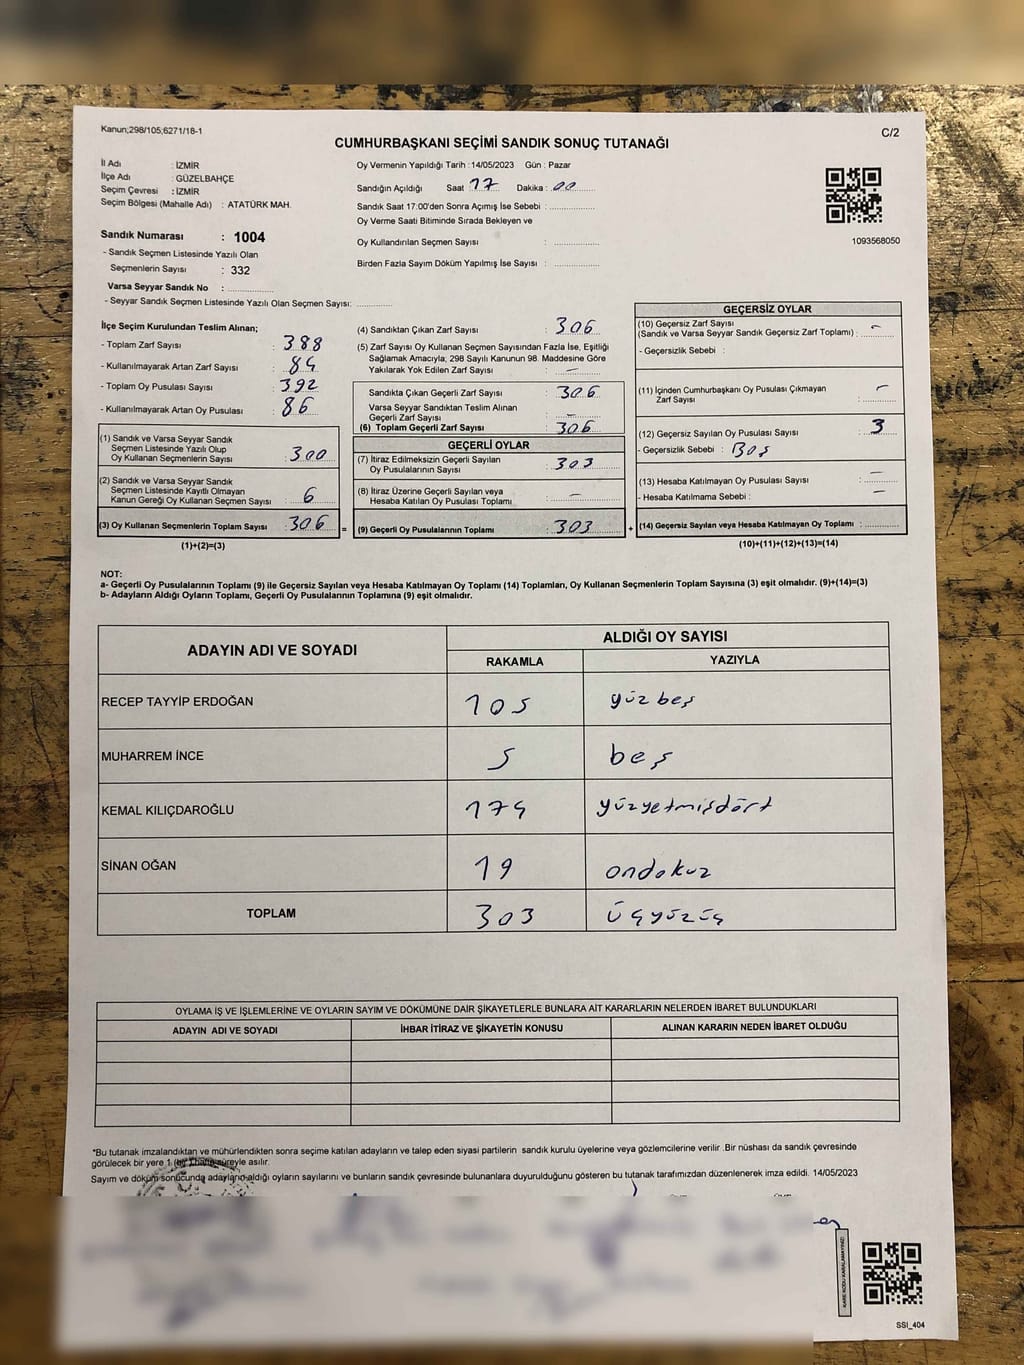 Kanun;298/105;6271/18-1
C/2
CUMHURBAŞKANI SEÇİMİ SANDIK SONUÇ TUTANAĞI
İl Adı : İZMİR
İlçe Adı : GÜZELBAHÇE
Seçim Çevresi : İZMİR
Seçim Bölgesi (Mahalle Adı) : ATATÜRK MAH.
Sandık Numarası : 1004
- Sandık Seçmen Listesinde Yazılı Olan
Seçmenlerin Sayısı : 332
Varsa Seyyar Sandık No :
- Seyyar Sandık Seçmen Listesinde Yazılı Olan Seçmen Sayısı:
Oy Vermenin Yapıldığı Tarih :14/05/2023 Gün : Pazar
Sandığın Açıldığı Saat 17 Dakika : 00
Sandık Saat 17:00'den Sonra Açımış İse Sebebi :
Oy Verme Saati Bitiminde Sırada Bekleyen ve
Oy Kullandırılan Seçmen Sayısı :
Birden Fazla Sayım Döküm Yapılmış İse Sayısı :
1093568050
İlçe Seçim Kurulundan Teslim Alınan;
- Toplam Zarf Sayısı : 388
- Kullanılmayarak Artan Zarf Sayısı : 84
- Toplam Oy Pusulası Sayısı : 392
- Kullanılmayarak Artan Oy Pusulası : 86
(1) Sandık ve Varsa Seyyar Sandık
Seçmen Listesinde Yazılı Olup
Oy Kullanan Seçmenlerin Sayısı : 300
(2) Sandık ve Varsa Seyyar Sandık
Seçmen Listesinde Kayıtlı Olmayan
Kanun Gereği Oy Kullanan Seçmen Sayısı : 6
(3) Oy Kullanan Seçmenlerin Toplam Sayısı : 306
(1)+(2)=(3)
(4) Sandıktan Çıkan Zarf Sayısı : 306
(5) Zarf Sayısı Oy Kullanan Seçmen Sayısından Fazla İse, Eşitliği
Sağlamak Amacıyla; 298 Sayılı Kanunun 98. Maddesine Göre
Yakılarak Yok Edilen Zarf Sayısı : –
Sandıkta Çıkan Geçerli Zarf Sayısı : 306
Varsa Seyyar Sandıktan Teslim Alınan
Geçerli Zarf Sayısı : –
(6) Toplam Geçerli Zarf Sayısı : 306
GEÇERLİ OYLAR
(7) İtiraz Edilmeksizin Geçerli Sayılan
Oy Pusulalarının Sayısı : 303
(8) İtiraz Üzerine Geçerli Sayılan veya
Hesaba Katılan Oy Pusulaları Toplamı : –
= (9) Geçerli Oy Pusulalarının Toplamı : 303 +
GEÇERSİZ OYLAR
(10) Geçersiz Zarf Sayısı
(Sandık ve Varsa Seyyar Sandık Geçersiz Zarf Toplamı) : –
- Geçersizlik Sebebi :
(11) İçinden Cumhurbaşkanı Oy Pusulası Çıkmayan
Zarf Sayısı : –
(12) Geçersiz Sayılan Oy Pusulası Sayısı : 3
- Geçersizlik Sebebi : BOŞ
(13) Hesaba Katılmayan Oy Pusulası Sayısı : –
- Hesaba Katılmama Sebebi : –
(14) Geçersiz Sayılan veya Hesaba Katılmayan Oy Toplamı :
(10)+(11)+(12)+(13)=(14)
NOT:
a- Geçerli Oy Pusulalarının Toplamı (9) ile Geçersiz Sayılan veya Hesaba Katılmayan Oy Toplamı (14) Toplamları, Oy Kullanan Seçmenlerin Toplam Sayısına (3) eşit olmalıdır. (9)+(14)=(3)
b- Adayların Aldığı Oyların Toplamı, Geçerli Oy Pusulalarının Toplamına (9) eşit olmalıdır.
ADAYIN ADI VE SOYADI
ALDIĞI OY SAYISI
RAKAMLA YAZIYLA
RECEP TAYYİP ERDOĞAN 105 yüzbeş
MUHARREM İNCE 5 beş
KEMAL KILIÇDAROĞLU 174 yüzyetmişdört
SİNAN OĞAN 19 ondokuz
TOPLAM 303 üçyüzüç
OYLAMA İŞ VE İŞLEMLERİNE VE OYLARIN SAYIM VE DÖKÜMÜNE DAİR ŞİKAYETLERLE BUNLARA AİT KARARLARIN NELERDEN İBARET BULUNDUKLARI
ADAYIN ADI VE SOYADI İHBAR İTİRAZ VE ŞİKAYETİN KONUSU ALINAN KARARIN NEDEN İBARET OLDUĞU
*Bu tutanak imzalandıktan ve mühürlendikten sonra seçime katılan adayların ve talep eden siyasi partilerin sandık kurulu üyelerine veya gözlemcilerine verilir .Bir nüshası da sandık çevresinde
görülecek bir yere 1 (bir) hafta süreyle asılır.
Sayım ve döküm sonucunda adayların aldığı oyların sayılarını ve bunların sandık çevresinde bulunanlara duyurulduğunu gösteren bu tutanak tarafımızdan düzenlenerek imza edildi. 14/05/2023
KARE KODU KARALAMAYINIZ!
SSI_404